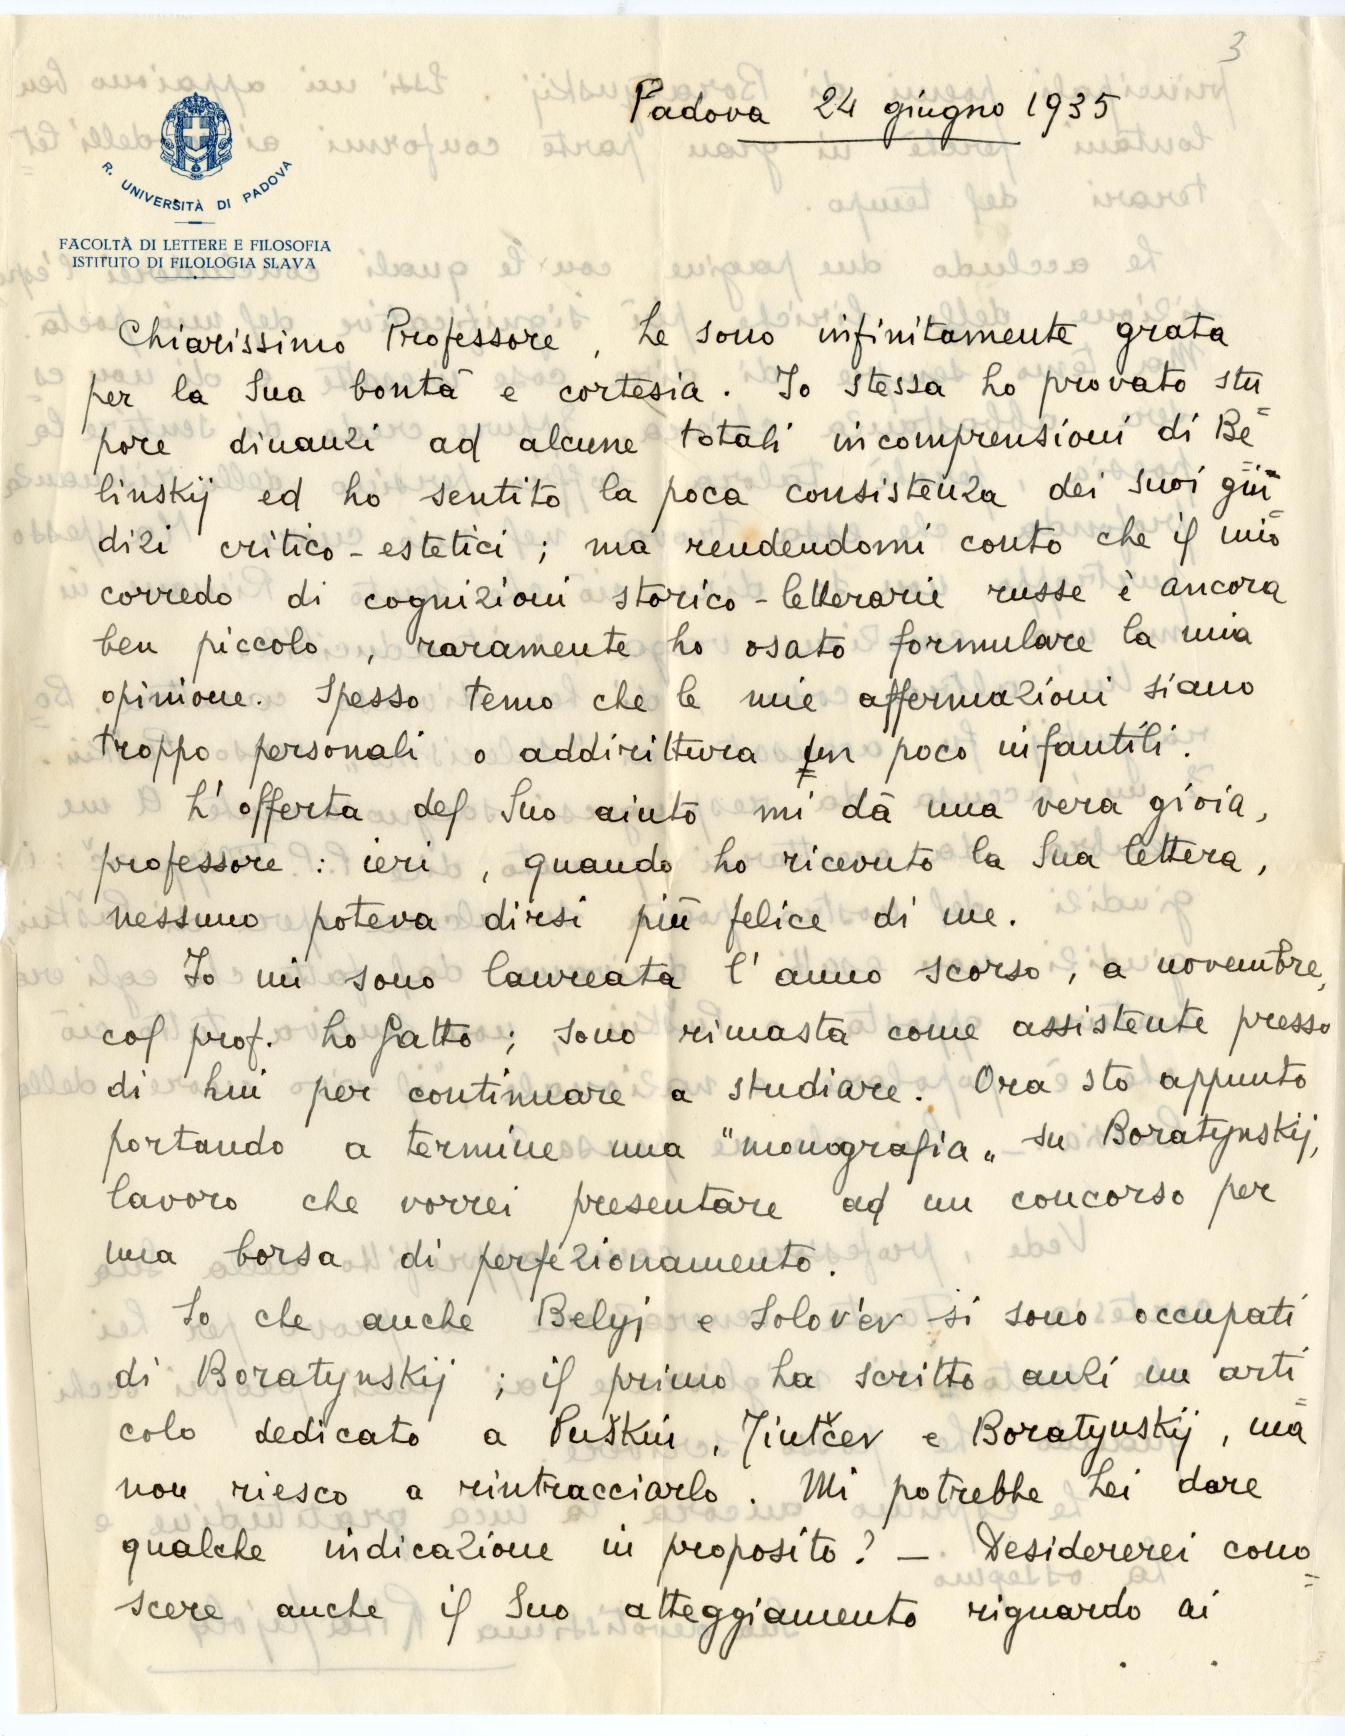 3
Padova 24 giugno 1935
R. UNIVERSITÀ DI PADOVA
FACOLTÀ DI LETTERE E FILOSOFIA
ISTITUTO DI FILOLOGIA SLAVA
Chiarissimo Professore, Le sono infinitamente grata
per la Sua bontà e cortesia. Io stessa ho provato stu=
pore dinanzi ad alcune totali incomprensioni di Be=
linskij ed ho sentito la poca consistenza dei suoi giu=
dizi critico-estetici; ma rendendomi conto che il mio
corredo di cognizioni storico-letterarie russe è ancora
ben piccolo, raramente ho osato formulare la mia
opinione. Spesso temo che le mie affermazioni siano
troppo personali o addirittura un poco infantili.
L'offerta del Suo aiuto mi dà una vera gioia,
professore: ieri, quando ho ricevuto la Sua lettera,
nessuno poteva dirsi più felice di me.
Io mi sono laureata l'anno scorso, a novembre,
col prof. Lo Gatto; sono rimasta come assistente presso
di Lui per continuare a studiare. Ora sto appunto
portando a termine una "monografia„ su Boratynskij,
lavoro che vorrei presentare ad un concorso per
una borsa di perfezionamento.
So che anche Belyj e Solov'ev si sono occupati
di Boratynskij; il primo ha scritto anzi un arti=
colo dedicato a Puškin, Tiutčev e Boratynskij, ma
non riesco a rintracciarlo. Mi potrebbe Lei dare
qualche indicazione in proposito? — Desidererei cono=
scere anche il Suo atteggiamento riguardo ai